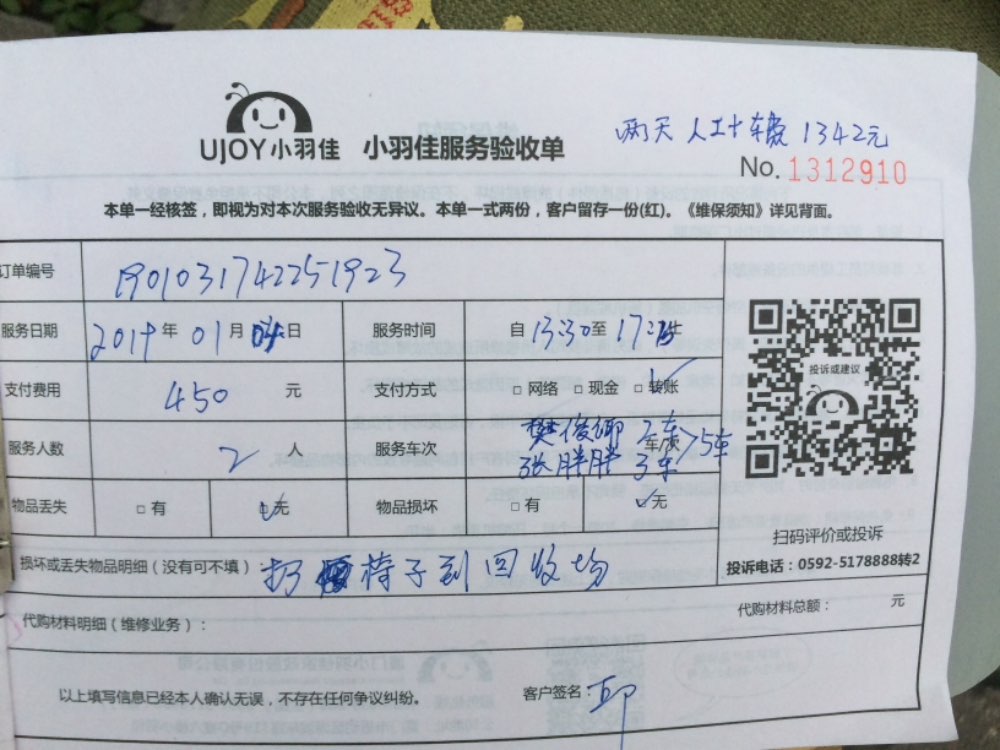 两天 人工+车费 1342元
UJOY小羽佳 小羽佳服务验收单
No. 1312910
本单一经核签，即视为对本次服务验收无异议。本单一式两份，客户留存一份(红)。《维保须知》详见背面。
订单编号 1901031742251923
服务日期 2019年 01月 04日 服务时间 自13:30至17:25
支付费用 450 元 支付方式 □网络 □现金 □转账
投诉或建议
服务人数 2 人 服务车次 樊俊卿 2车 车/次 >5车
张胖胖 3车
物品丢失 □有 □无 物品损坏 □有 □无
扫码评价或投诉
损坏或丢失物品明细（没有可不填） 扔 椅子到回收场
投诉电话：0592-5178888转2
代购材料总额： 元
代购材料明细（维修业务）：
以上填写信息已经本人确认无误，不存在任何争议纠纷。 客户签名：